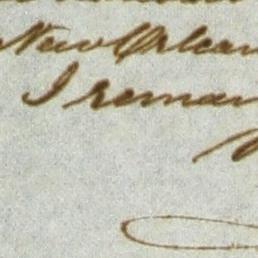 New Orlean
I reman